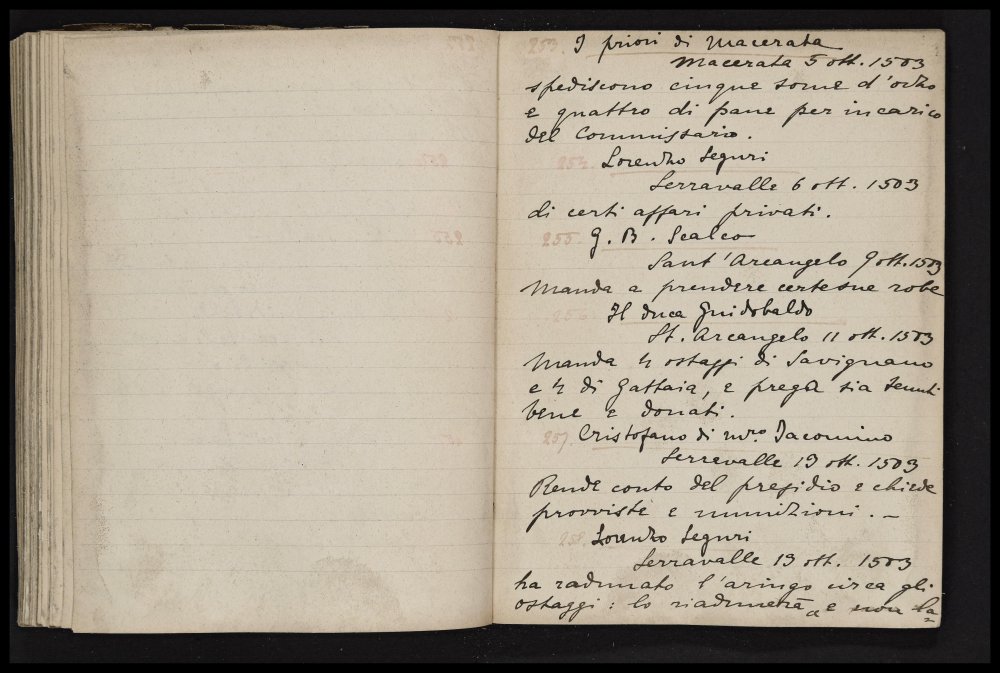 253. I priori di Macerata
Macerata 5 ott. 1503
spediscono cinque some d'orzo
e quattro di pane per incarico
del Commissario.
254. Lorenzo Seguri
Serravalle 6 ott. 1503
di certi affari privati.
255. G. B. Scalco
Sant'Arcangelo 9 ott. 1503
Manda a prendere certe sue robe
256. Il duca Guidobaldo
St. Arcangelo 11 ott. 1503
Manda 4 ostaggi di Savignano
e 4 di Gattaia, e prega sia tenuti
bene e donati.
257. Cristofano di mro. Jacomino
Serravalle 19 ott. 1503
Rende conto del presidio e chiede
provviste e munizioni. –
258. Lorenzo Seguri
Serravalle 19 ott. 1503
ha radunato l'aringo circa gli
ostaggi: lo riadunerà e non la=